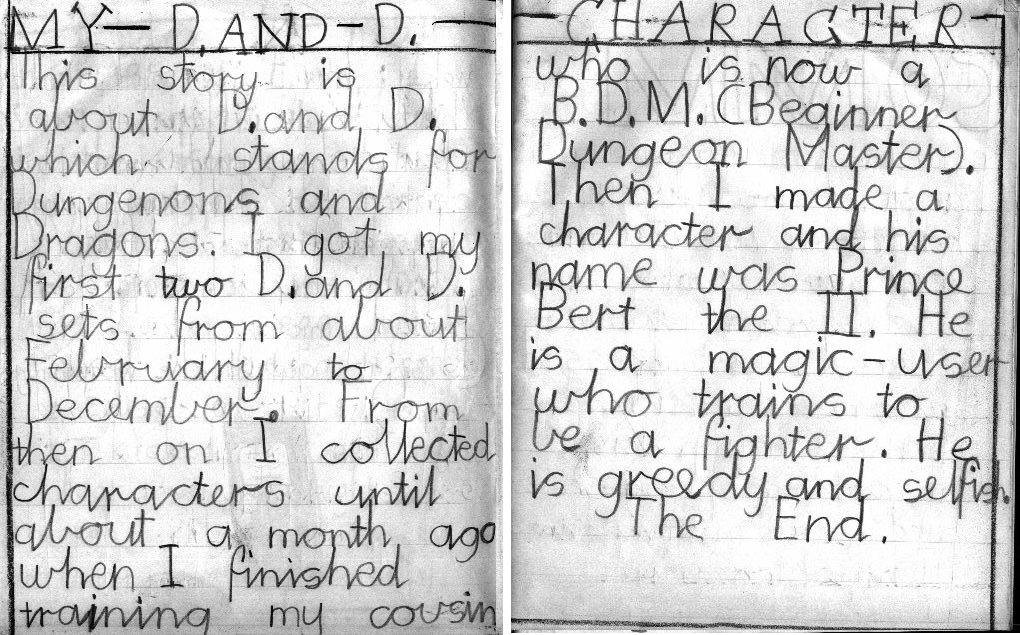 MY-D.AND-D.-
This story is
about D.and D.
which stands for
Dungenons and
Dragons. I got my
first two D.and D.
sets from about
Februriary to
December. From
then on I collected
characters until
about a month ago
when I finished
training my cousin
-CHARACTER-
who is now a
B.D.M.(Beginner
Dungeon Master).
Then I made a
character and his
name was Prince
Bert the II. He
is a magic-user
who trains to
be a fighter. He
is greedy and selfish.
The End.